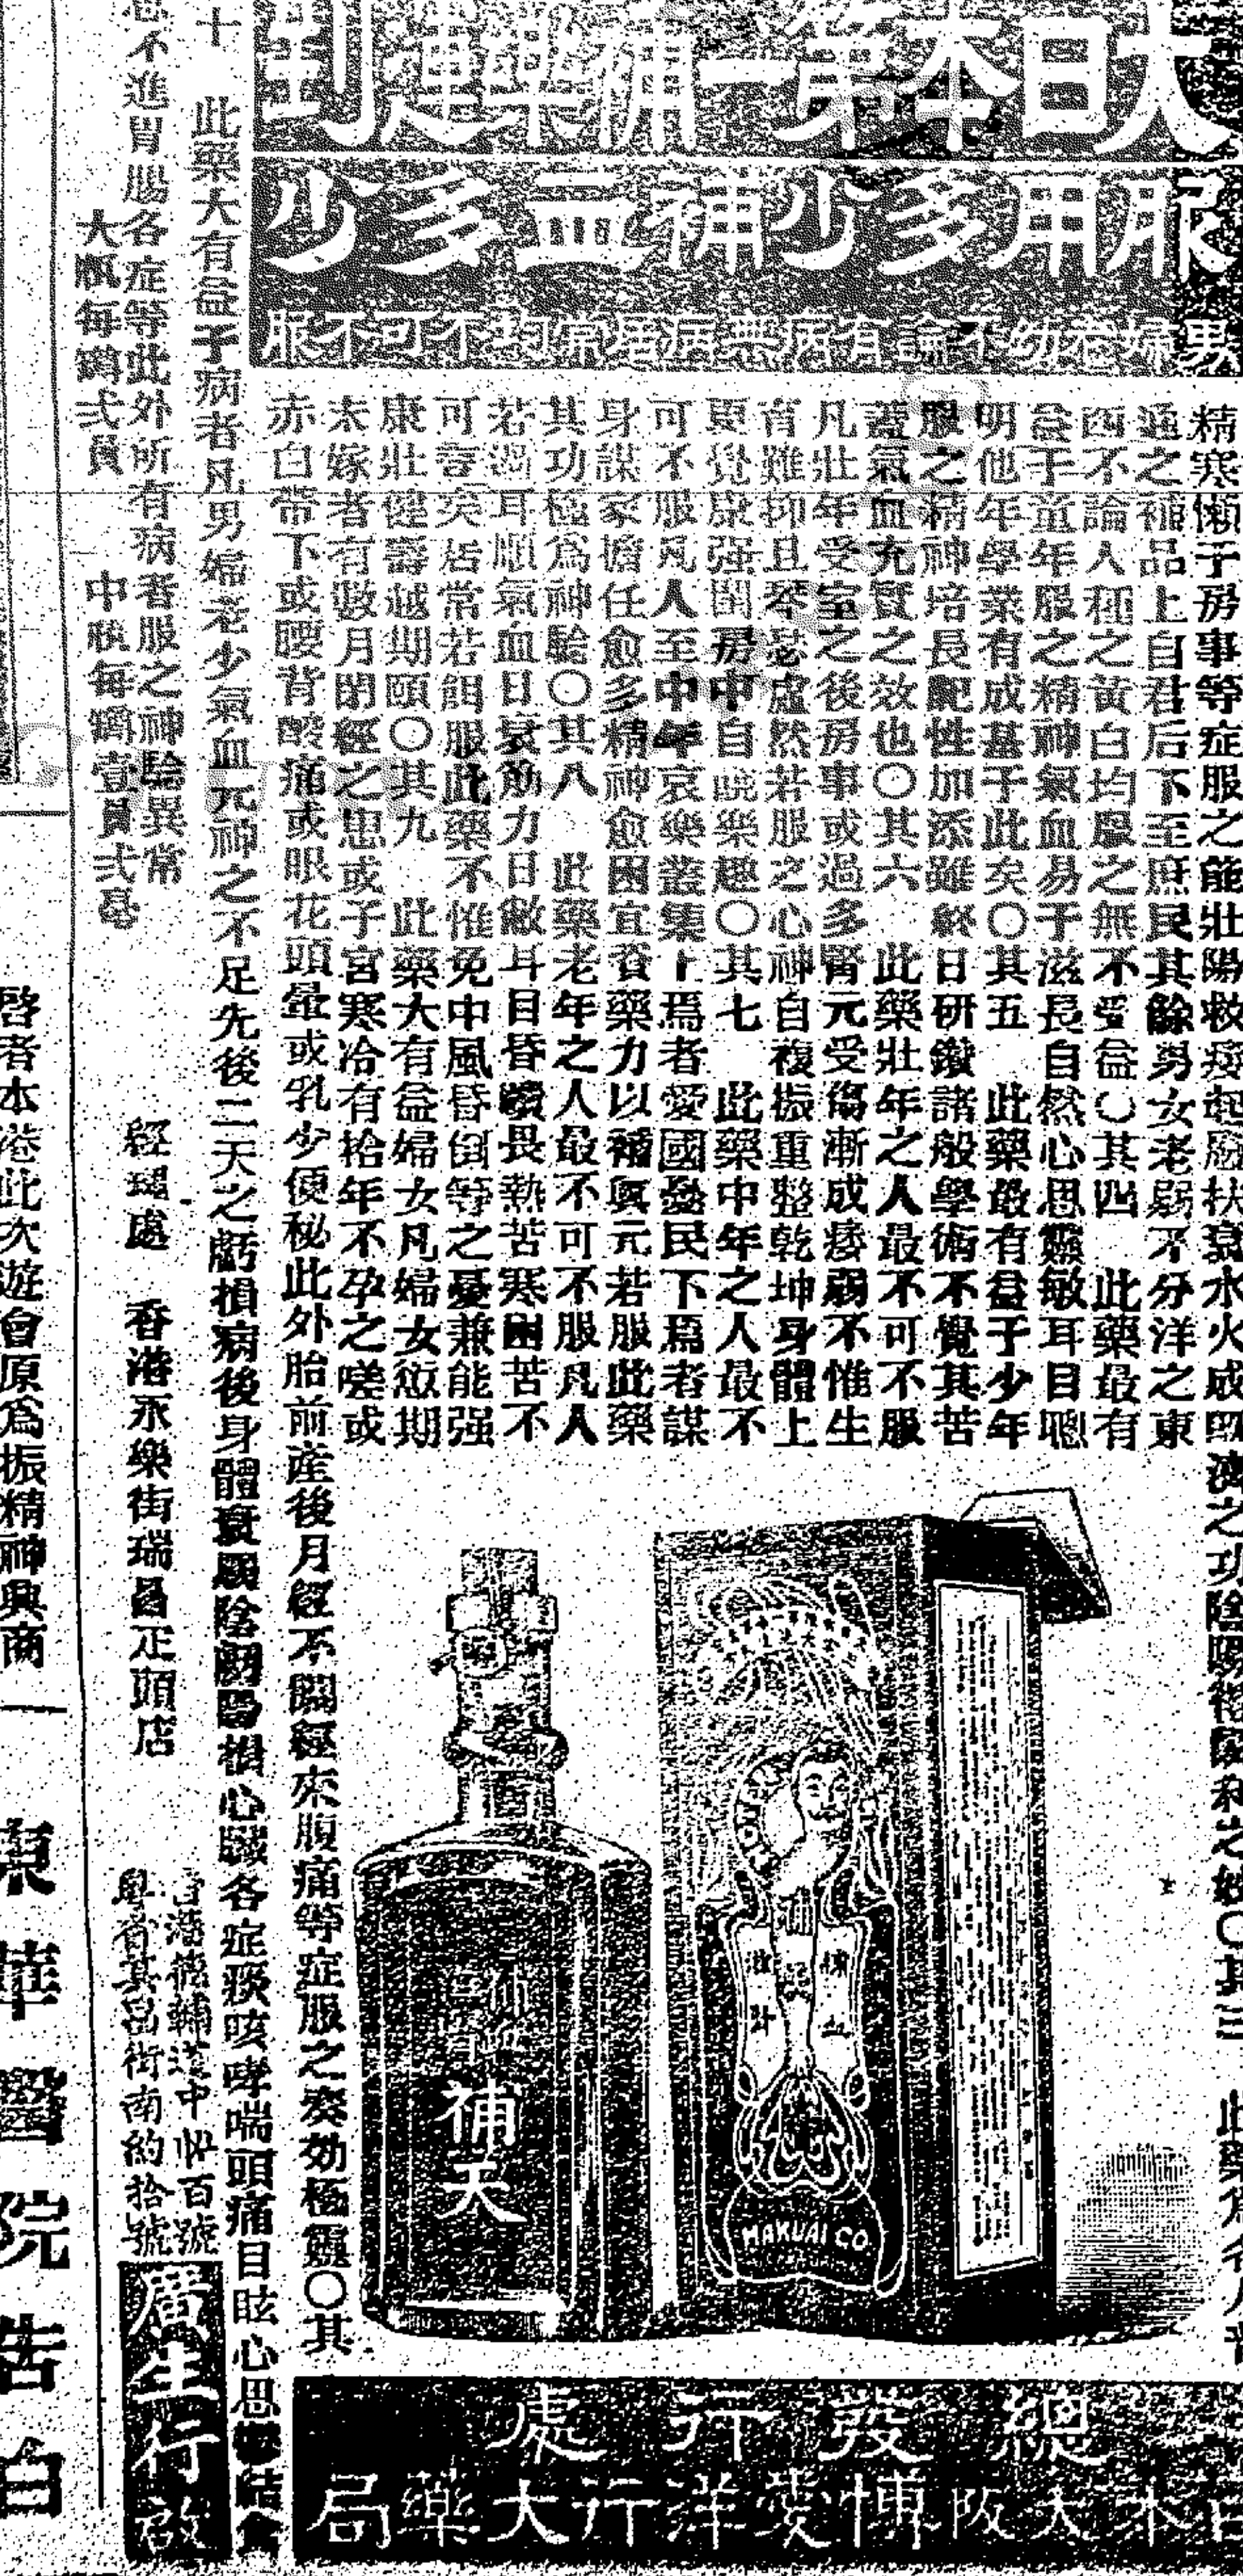 大日本第一補藥運到
服用多少補血多少
男婦老幼不論有病無病居常均不可不服
精寒懶于房事等症服之能壯陽救痿起衰水火成既濟之功陰陽和之妙〇其三 此藥為
通之補品上自君后下至庶民其餘男女老弱不分洋之東
西不論人種之黃白均服之無不受益〇其四 此藥最有
益于童年服之精神氣血易于滋長自然心思靈敏耳目聰
明他年學業有成基于此矣〇其五 此藥最有益于少年
服之精神培長記性加添雖終日研鑽諸般學術不覺其苦
蓋氣血充實之效也〇其六 此藥壯年之人最不可不服
凡壯年受室之後房事或過多腎元受傷漸成痿弱不惟生
育難抑且琴瑟虛然若服之心神自複振重整乾坤身體上
更覺康强閨房中自饒樂趣〇其七 此藥中年之人最不
可不服凡人至中年哀樂叢集上焉者愛國憂民下焉者謀
身謀家擔任愈多精神愈困宜資藥力以補眞元若服此藥
其功極為神驗〇其八 此藥老年之人最不可不服凡人
若過耳順氣血日衰筋力日敝耳目昏聵畏熱苦寒困苦不
可言矣居常若餌服此藥不惟免中風昏倒等之憂兼能强
康壯健壽越期頤〇其九 此藥大有益婦女凡婦女愆期
未嫁者有數月閉經之患或子宮寒冷有拾年不孕之嗟或
赤白帶下或腰背酸痛或眼花頭暈或乳少便秘此外胎前產後月經不調經來腹痛等症服之奏効極靈〇其
十 此藥大有益于病者凡男婦老少氣血元神之不足先後二天之虧損病後身體衰弱陰虧陽損心臟各症痰咳哮喘頭痛目眩心思鬱結食
不進胃腸各症等此外所有病者服之神驗異常
大瓶每鐏弍員 中瓶每鐏壹員弍毫
經理處 香港永樂街瑞昌疋頭店
香港德輔道中百號
粵省其昌街南約拾號
廣生行啟
補血
壯計
HAKUAI CO
補天
總發行處
日本大阪博愛洋行大藥局
啓者本港此次遊會原為振精神興商
東華醫院告白